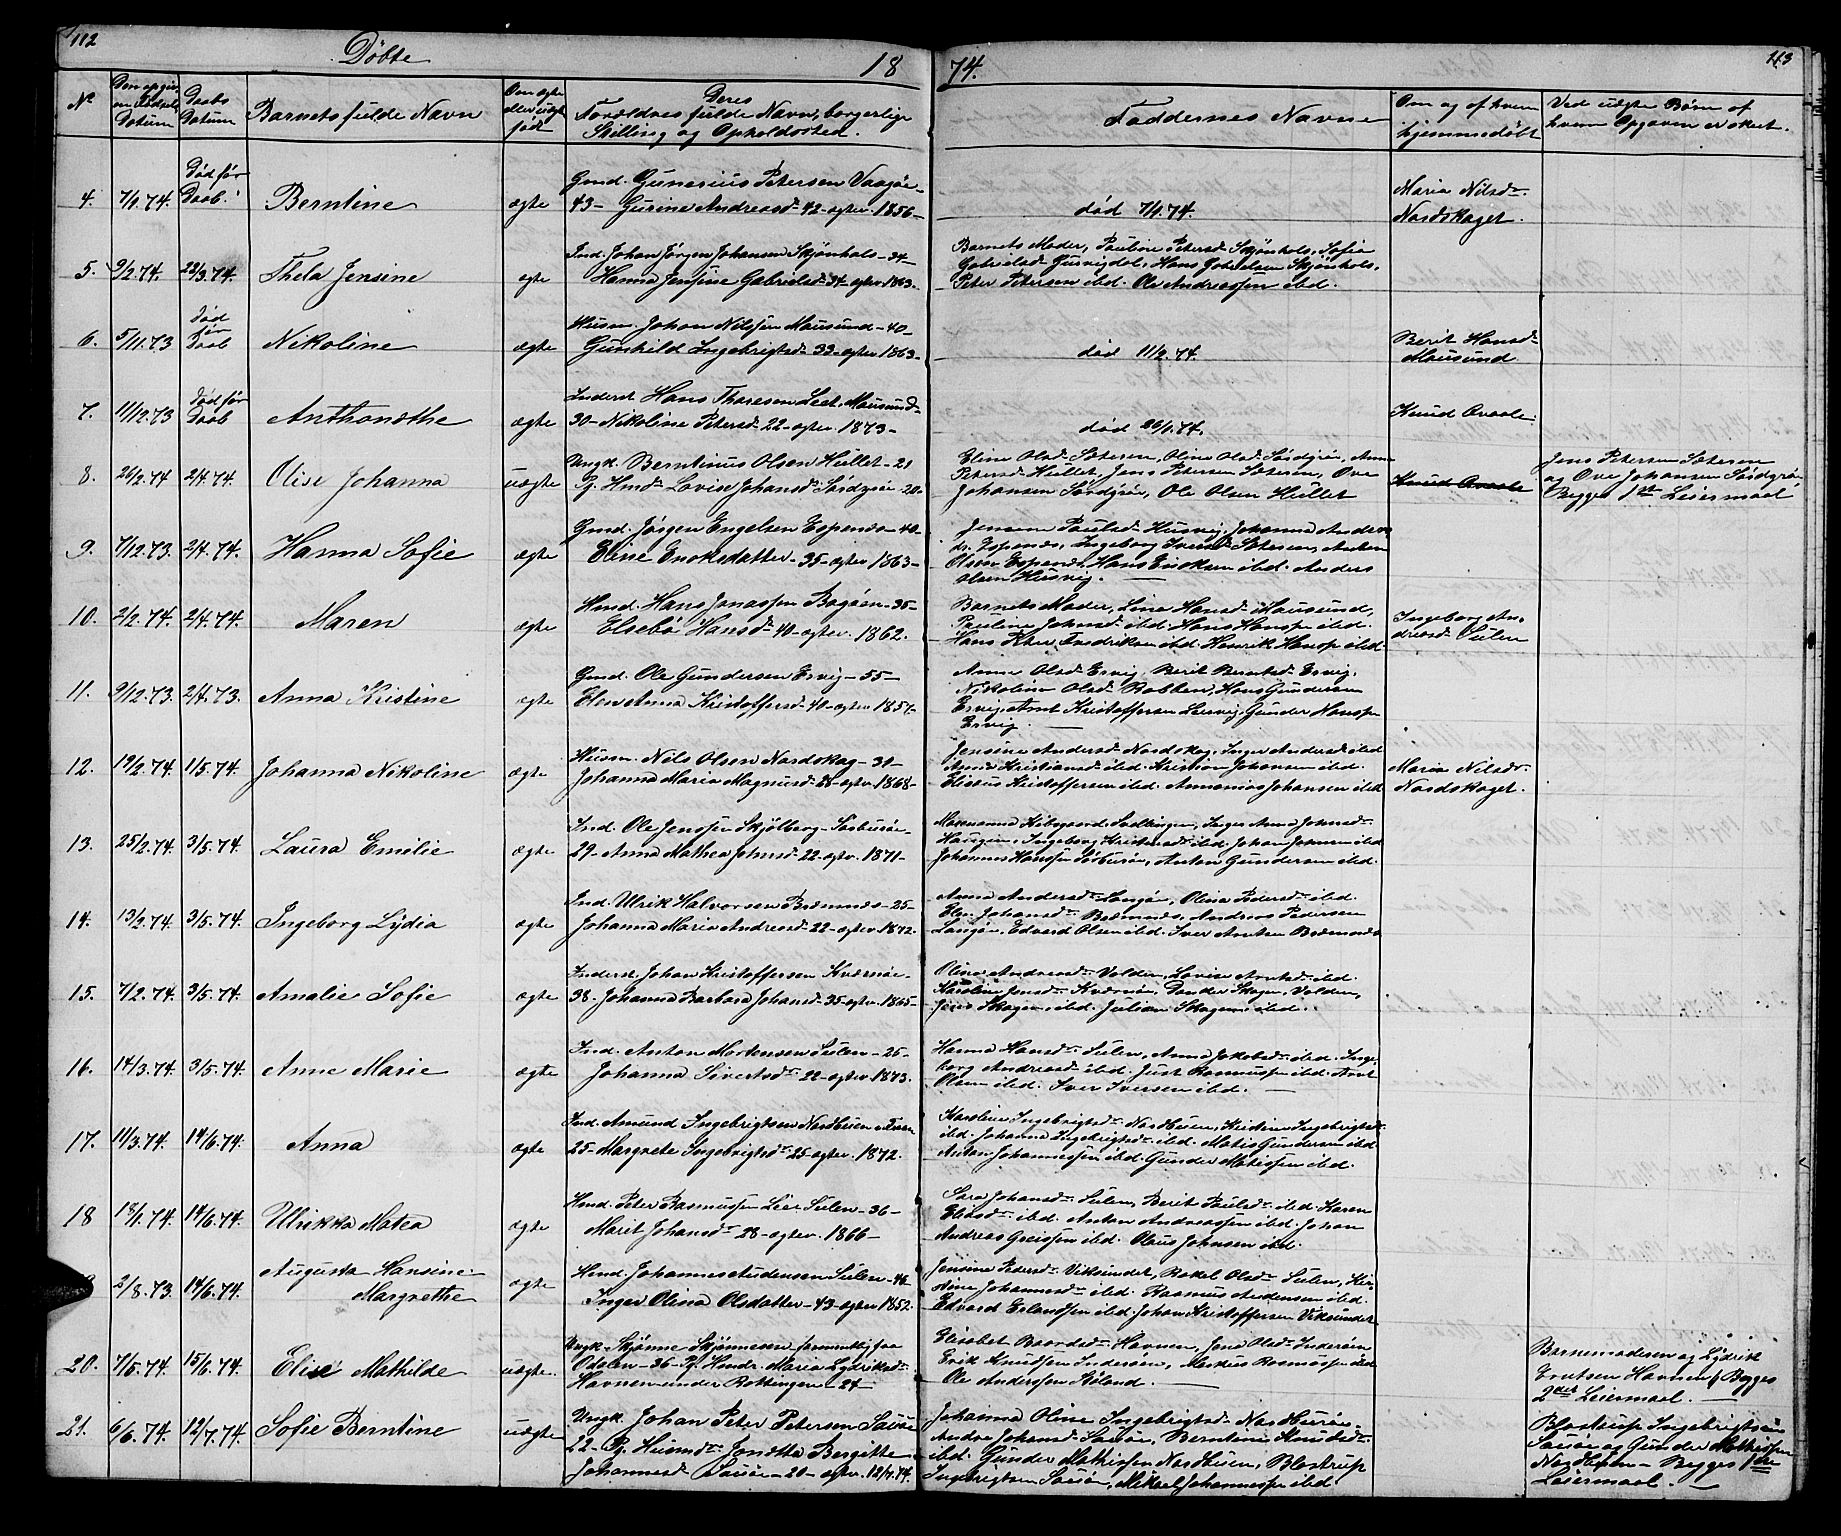 112
Døbte
18
74.
113
No
Den opgiv-
ne Fødsels
Datum
Daabs
Datum
Barnets fulde Navn
Om ægte
eller uægte
født
Deres
Forældres fulde Navn, borgerlige
Stilling og Opholdssted.
Faddernes Navne
Om og af hvem
hjemmedøbt
Ved uægte Børn af
hvem Opgaven er skeet.
4. 7/1.74. Død før
Daab. Berntine ægte
Gmd. Gunerius Petersen Vaagøe-
43- Gurine Andreasdr 42- egtev. 1856-
død 7/1.74.
Maria Nilsdr
Nordskaget.
5. 9/2.74. 22/3.74. Thela Jensine ægte
Ind. Johan Jørgen Johansen Skjønhals-34-
Hanna Jensine Gabrielsdr 34-egtev. 1863.
Barnets Moder, Pauline Petersdr Skjønhals, Sofie
Gabrielsdr Hans Gabrielsen Skjønhals,
Peter Petersen ibd. Ole Andreassen ibd.
6. 5/11.73 Død
før
Daab Nikoline ægte
Husm. Johan Nilssen Mausund-40-
Gunhild Ingebrigtsdr 33-egtev. 1863-
død 11/2.74.
Berit Hansdr
Mausund
7. 11/12.73 Død før
Daab Anthonethe ægte
Inderst Hans Thoresen Leet, Mausund-
30- Nikoline Petersdr 22-egtev. 1873-
død 26/1.74.
Knud Ovaole
8. 26/2.74 2/4.74. Olise Johanna uægte
Ungk. Berntinus Olsen Hullet-21
Pg. Hmdr Lovise Johansdr Sørdyrø-20.
Eline Olsdr Sætersen, Oline Olsdr Sørdyrø, Anne
Petersdr Hullet, Jens Petersen Sætersen, Ove
Johansen Sørdyrø, Ole Olsen Hullet
Knud Ovaole
Jens Petersen Sætersen
og Ove Johansen Sørdyrø
Begges 1ste Leiermaal
9. 7/12.73. 2/4.74. Hanna Sofie ægte
Gmd. Jørgen Engelsen Espenæs-40-
Elene Enoksdatter-35-egtev. 1863-
Jensine Paulsdr Husvig, Johanna Anders-
dr. Espenæs, Ingeborg Iversdr Sætersen, Anders
Olsen Espenæs, Hans Enoksen ibd. Anders
Olsen Husvig.
10. 2/2.74. 2/4.74. Maren ægte
Hmd. Hans Jonassen Bogøen-35-
Elsebø Hansdr 40-egtev. 1862.
Barnets Moder, Lina Hansdr Mausund,
Pauline Johnsdr ibd. Hans Hanssen ibd.
Hans Fredriksen ibd. Henrik Hanssen ibd.
Ingeborg An-
dreasdr Sulen
11. 9/12.73. 2/4.73. Anna Kristine ægte
Gmd. Ole Gundersen Ervig-55-
Elen Anna Kristoffersdr 40-egtev. 1857-
Anne Olsdr Ervig, Berit Berntsdr Ervig,
Nikoline Olsdr Robben, Hans Gundersen
Ervig, Arnt Kristoffersen Gunder Hanssen
Ervig.
12. 19/2.74. 1/5.74. Johanna Nikoline ægte
Husm. Nils Olsen Nordskag-31-
Johanna Maria Magnusdr 28-egtev. 1868-
Jensine Andersdr Nordskag, Inger Andersdr ibd
Kristiansdr ibd. Kristian Johansen ibd.
Elisæus Kristoffersen ibd. Annanias Johansen ibd
Maria Nilsdr
Nordskaget.
13. 25/2.74. 3/5.74. Laura Emilie ægte
Ind. Ole Jenssen Skjølberg-Sørburøe-
29- Anna Mathea Johnsdr 22-egtev. 1871-
Marianna Svellingen, Inger Anna Johnsdr
Ingeborg Kristensdr ibd. Johan Johnsen ibd
Johannes Hanssen Sørburø, Anton Gundersen ibd.
14. 13/2.74. 3/5.74. Ingeborg Lydia ægte
Ind. Ulrik Halvorsen Bremnæs-25-
Johanna Maria Andreasdr 22-egtev. 1872.
Anna Andersdr Langø, Olina Pedersdr ibd.
Elen Johansdr Bremnæs, Andreas Pedersen
Langø, Edvard Olsen ibd. Iver Arntsen Bremnæs
15. 7/2.74. 3/5.74. Amalie Sofie ægte
Inderst. Johan Kristoffersen Kværnøe-
38- Johanna Barbara Johansdr 35-egtev. 1865-
Olina Andreasdr Valden, Lovise Arntsdr ibd.
Karoline Jensdr Kværnø, Skagen, Valden,
Jens Skagen, ibd. Julian Skagen, ibd.
16. 14/3.74. 3/5.74. Anne Marie ægte
Ind. Anton Mortensen Sulen-25-
Johanna Sivertsdr 22-egtev. 1873.
Hanna Hansdr Sulen, Anna Jakobsdr ibd. Inge-
borg Andreasdr ibd. Just Rasmussen ibd. Arnt
Olsen ibd. Iver Iversen ibd.
17. 11/3.74. 14/6.74. Anna ægte
Ind. Amund Ingebrigtsen Nordbuen
25- Margrete Ingebrigtsdr 25-egtev. 1872.
Karoline Ingebrigtsdr Nordbuen, Kristine Ingebrigtsdr
ibd. Johanna Ingebrigtsdr ibd. Matis Gundersen ibd
Anton Johannessen ibd. Gunder Matissen ibd.
18 18/1.74. 14/6.74. Ulrikka Matea ægte
Hmd. Peter Rasmussen Leer Sulen-36-
Marit Johansdr 28-egtev. 1866-
Sara Johansdr Sulen, Berit Paulsdr ibd. Karen
Eliasdr ibd. Anton Andreassen ibd. Johan
Andreas Greissen ibd. Olaus Johnsen ibd.
2/8.73. 14/6.74. Augusta Hansine
Margrethe ægte
Hmd. Johannes Audensen Sulen-46-
Inger Olina Olsdatter-43-egtev. 1852.
Jensine Pedersdr Viksundet, Rakel Olsdr Sulen, Kir-
stine Johannesdr ibd. Rasmus Audensen ibd.
Edvard Erlandsen ibd. Johan Kristoffersen Viksundet
20. 7/5.74. 15/6.74. Elise Mathilde uægte.
Ungk. Skjønne Skjønnesen formentlig fra
Odelen-36- Pg. Hmdr. Maria Lydriksdr
Havnen under Rottingen-24-
Elisabet Baardsdr Havnen, Jens Olsdr Inderøen
Erik Knudssen Inderøen, Rasmussen ibd
Ole Anderssen Køland.
Barnemoderen og Lydrik
Knutsen Havnen. Begges
2det Leiermaal.
21. 6/6.74. 12/7.74. Sofie Berntine uægte
Ungk. Johan Peter Petersen Sauøe
22- Pg. Husmdr. Jonetta Bergitte
Johannesdr Sauøe-20-egtev. 12/7.74.
Johanna Oline Ingebrigtsdr Nordburøe-
Andrea Johansdr Sauøe, Berntine Knudsdr
ibd. Gunder Mathissen Nordbuen, Blostrup
Ingebrigtsen Sauøe, Mikael Johannessen ibd
Blostrup Ingebrigtsen
Sauøe og Gunder Mathissen
Nordbuen- Begges 1ste
Leiermaal.